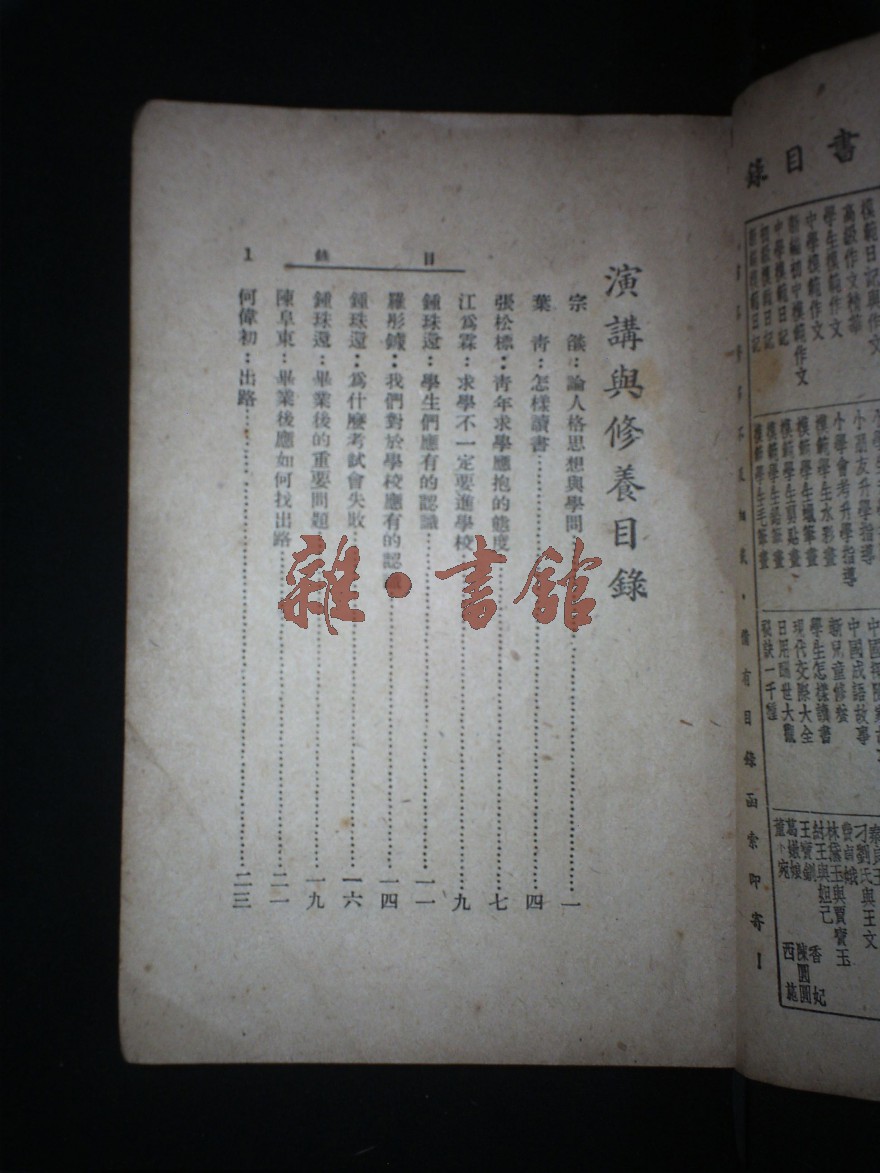 演講與修養目錄
宗　　：論人格思想與學問……一
葉　青：怎樣讀書……四
張松標：青年求學應抱的態度……七
江爲霖：求學不一定要進學校……九
鍾珠還：學生們應有的認識……一一
羅彤　：我們對於學校應有的認……一四
鍾珠還：爲什麼考試會失敗……一六
鍾珠還：畢業後的重要問題……一九
陳阜東：畢業後應如何找出路……二一
何偉初：出路……二三
目錄
1
雜·書館
書目錄
模範日記與作文
高級作文精華
學生模範作文
中學模範作文
新編初中模範作文
中學模範日記
初級模範日記
小朋友升學指導
小學會考升學指導
模範學生水彩畫
模範學生蠟筆畫
模範學生鉛筆畫
模範學生毛筆畫
中國成語故事
新兒童修養
學生怎樣讀書
現代交際大全
日用萬世大觀
秘訣一千種
刁劉氏與王文
林黛玉與賈寶玉
紂王與妲己
王寶釧
董小宛
香妃
陳圓圓
西施
備有目錄函索即寄！